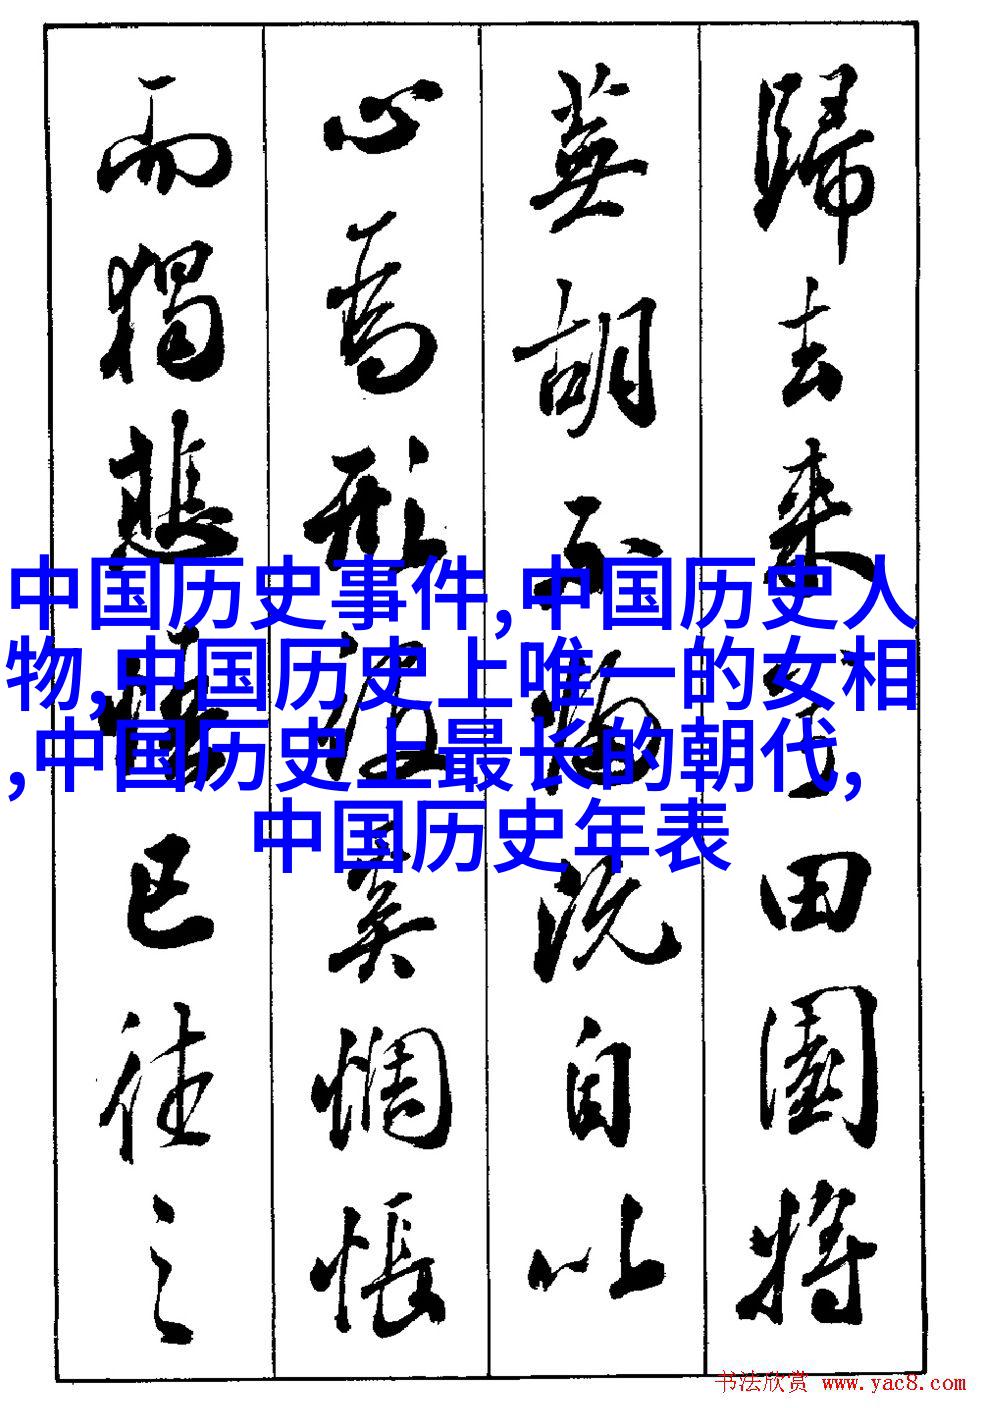 歸去来兮田園將
蕪胡不歸既自以
心為形役奚惆悵
而獨悲悟已往之
中国历史事件,中国历史人
物,中国历史上唯一的女相
,中国历史上最长的朝代,
中国历史年表
书法欣赏 www.yac8.com